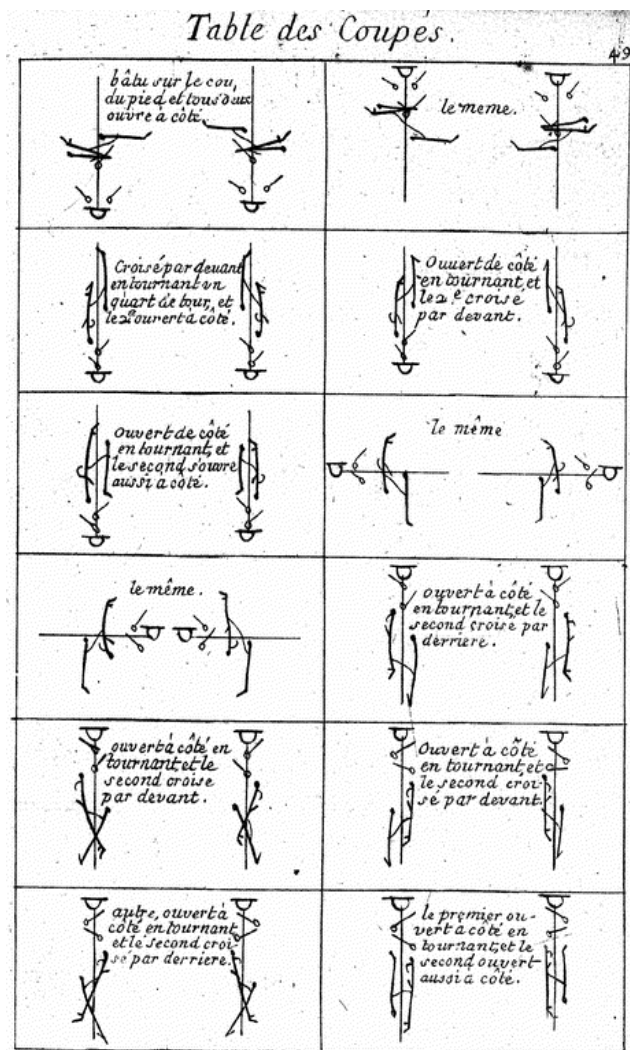 Table des Coupés.
49
bâtu sur le cou,
du pied et tous deux
ouvre à côté.
le meme.
Croisé par devant
en tournant un
quart de tour, et
le 2e ouvert à côté.
Ouvert de côté
en tournant, et
le 2e croisé
par devant.
ouvert de côté
en tournant, et
le second s'ouvre
aussi a coté.
le même
le même.
ouvert à côté
en tournant, et le
second croisé par
derriere.
ouvert à côté en
tournant, et le
second croise
par devant.
Ouvert à côté
en tournant, et
le second croi-
sé par devant.
autre, ouvert à
côté en tournant
et le second croi-
sé par derriere.
le premier ou-
vert à côté en
tournant, et le
second ouvert
aussi à côté.